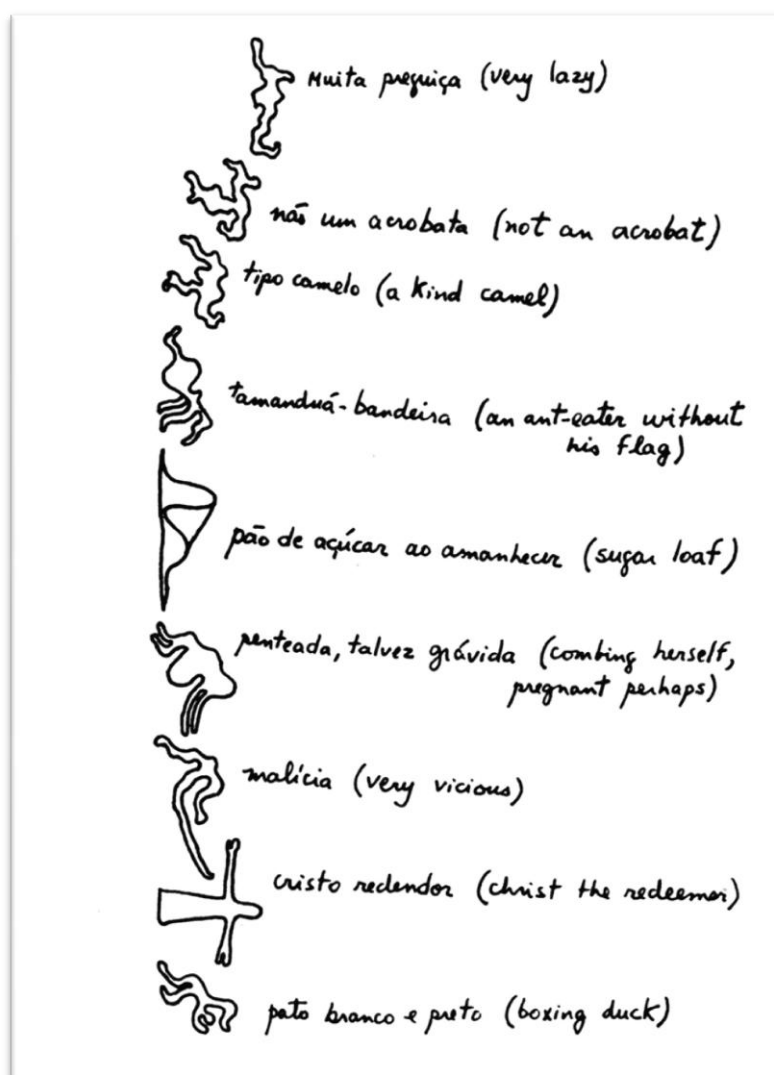 muita preguiça (very lazy)
não um acrobata (not an acrobat)
tipo camelo (a kind camel)
tamanduá-bandeira (an ant-eater without
his flag)
pão de açúcar ao amanhecer (sugar loaf)
penteada, talvez grávida (combing herself,
pregnant perhaps)
malícia (very vicious)
cristo redendor (christ the redeemer)
pato branco e preto (boxing duck)